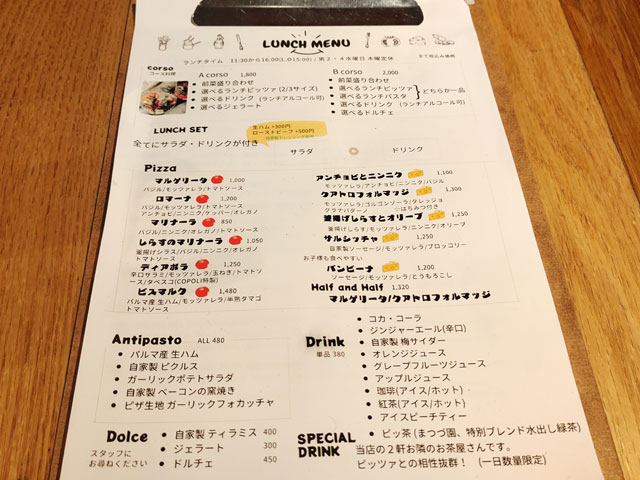 LUNCH MENU
ランチタイム 11:30から16:00(L.O15:00) / 第2・4水曜日 木曜定休
全て税込み価格
corso
コース料理
A corso 1,800
• 前菜盛り合わせ
• 選べるランチピッツァ (2/3サイズ)
• 選べるドリンク (ランチアルコール可)
• 選べるジェラート
B corso 2,000
• 前菜盛り合わせ
• 選べるランチピッツァ
• 選べるランチパスタ
どちらか一品
• 選べるドリンク (ランチアルコール可)
• 選べるドルチェ
LUNCH SET
生ハム+300円
ローストビーフ+500円
全てにサラダ・ドリンクが付き
サラダ
ドリンク
Pizza
マルゲリータ 1,000
バジル/モッツァレラ/トマトソース
ロマーナ 1,200
バジル/モッツァレラ/トマトソース
アンチョビ/ニンニク/ケッパー/オレガノ
マリナーラ 850
バジル/ニンニク/オレガノ/トマトソース
しらすのマリナーラ 1,050
釜揚げシラス/バジル/ニンニク/オレガノ
トマトソース
ディアボラ 1,250
辛口サラミ/モッツァレラ/玉ねぎ/トマトソー
ス/タバスコ(COPOLI特製)
ビスマルク 1,480
パルマ産 生ハム/モッツァレラ/半熟タマゴ
トマトソース
アンチョビとニンニク 1,100
モッツァレラ/アンチョビ/ニンニク/バジル
クアトロフォルマッジ 1,300
モッツァレラ/ゴルゴンゾーラ/タレッジョ
グラナパダーノ はちみつ付き
釜揚げしらすとオリーブ 1,250
釜揚げしらす/モッツァレラ/ニンニク/オリーブ
サルシッチャ 1,250
自家製ソーセージ/モッツァレラ/ブロッコリー
お子様も食べやすい
バンビーナ 1,200
ソーセージ/モッツァレラ/とうもろこし
Half and Half 1,320
マルゲリータ/クアトロフォルマッジ
Antipasto ALL 480
• パルマ産 生ハム
• 自家製 ピクルス
• ガーリックポテトサラダ
• 自家製 ベーコンの窯焼き
• ピザ生地 ガーリックフォカッチャ
Drink
単品 380
• コカ・コーラ
• ジンジャーエール(辛口)
• 自家製 梅サイダー
• オレンジジュース
• グレープフルーツジュース
• アップルジュース
• 珈琲(アイス/ホット)
• 紅茶(アイス/ホット)
• アイスピーチティー
Dolce
スタッフに
お尋ねください
• 自家製 ティラミス 400
• ジェラート 300
• ドルチェ 450
SPECIAL
DRINK
• ピッ茶 (まつづ園、特別ブレンド水出し緑茶)
当店の2軒お隣のお茶屋さんです。
ピッツァとの相性抜群! (一日数量限定)